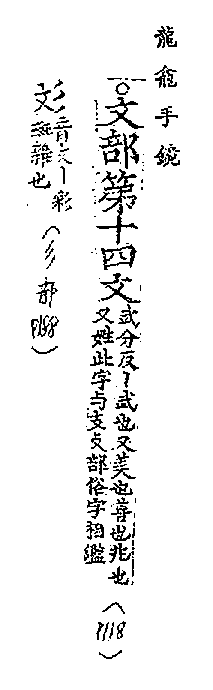 龍龕手鏡
○文部第十四文武分反〡武也又美也善也兆也
又姓此字与支攴部俗字相濫
(1118)
彣音文〡彩
無雜也
(彡部188)